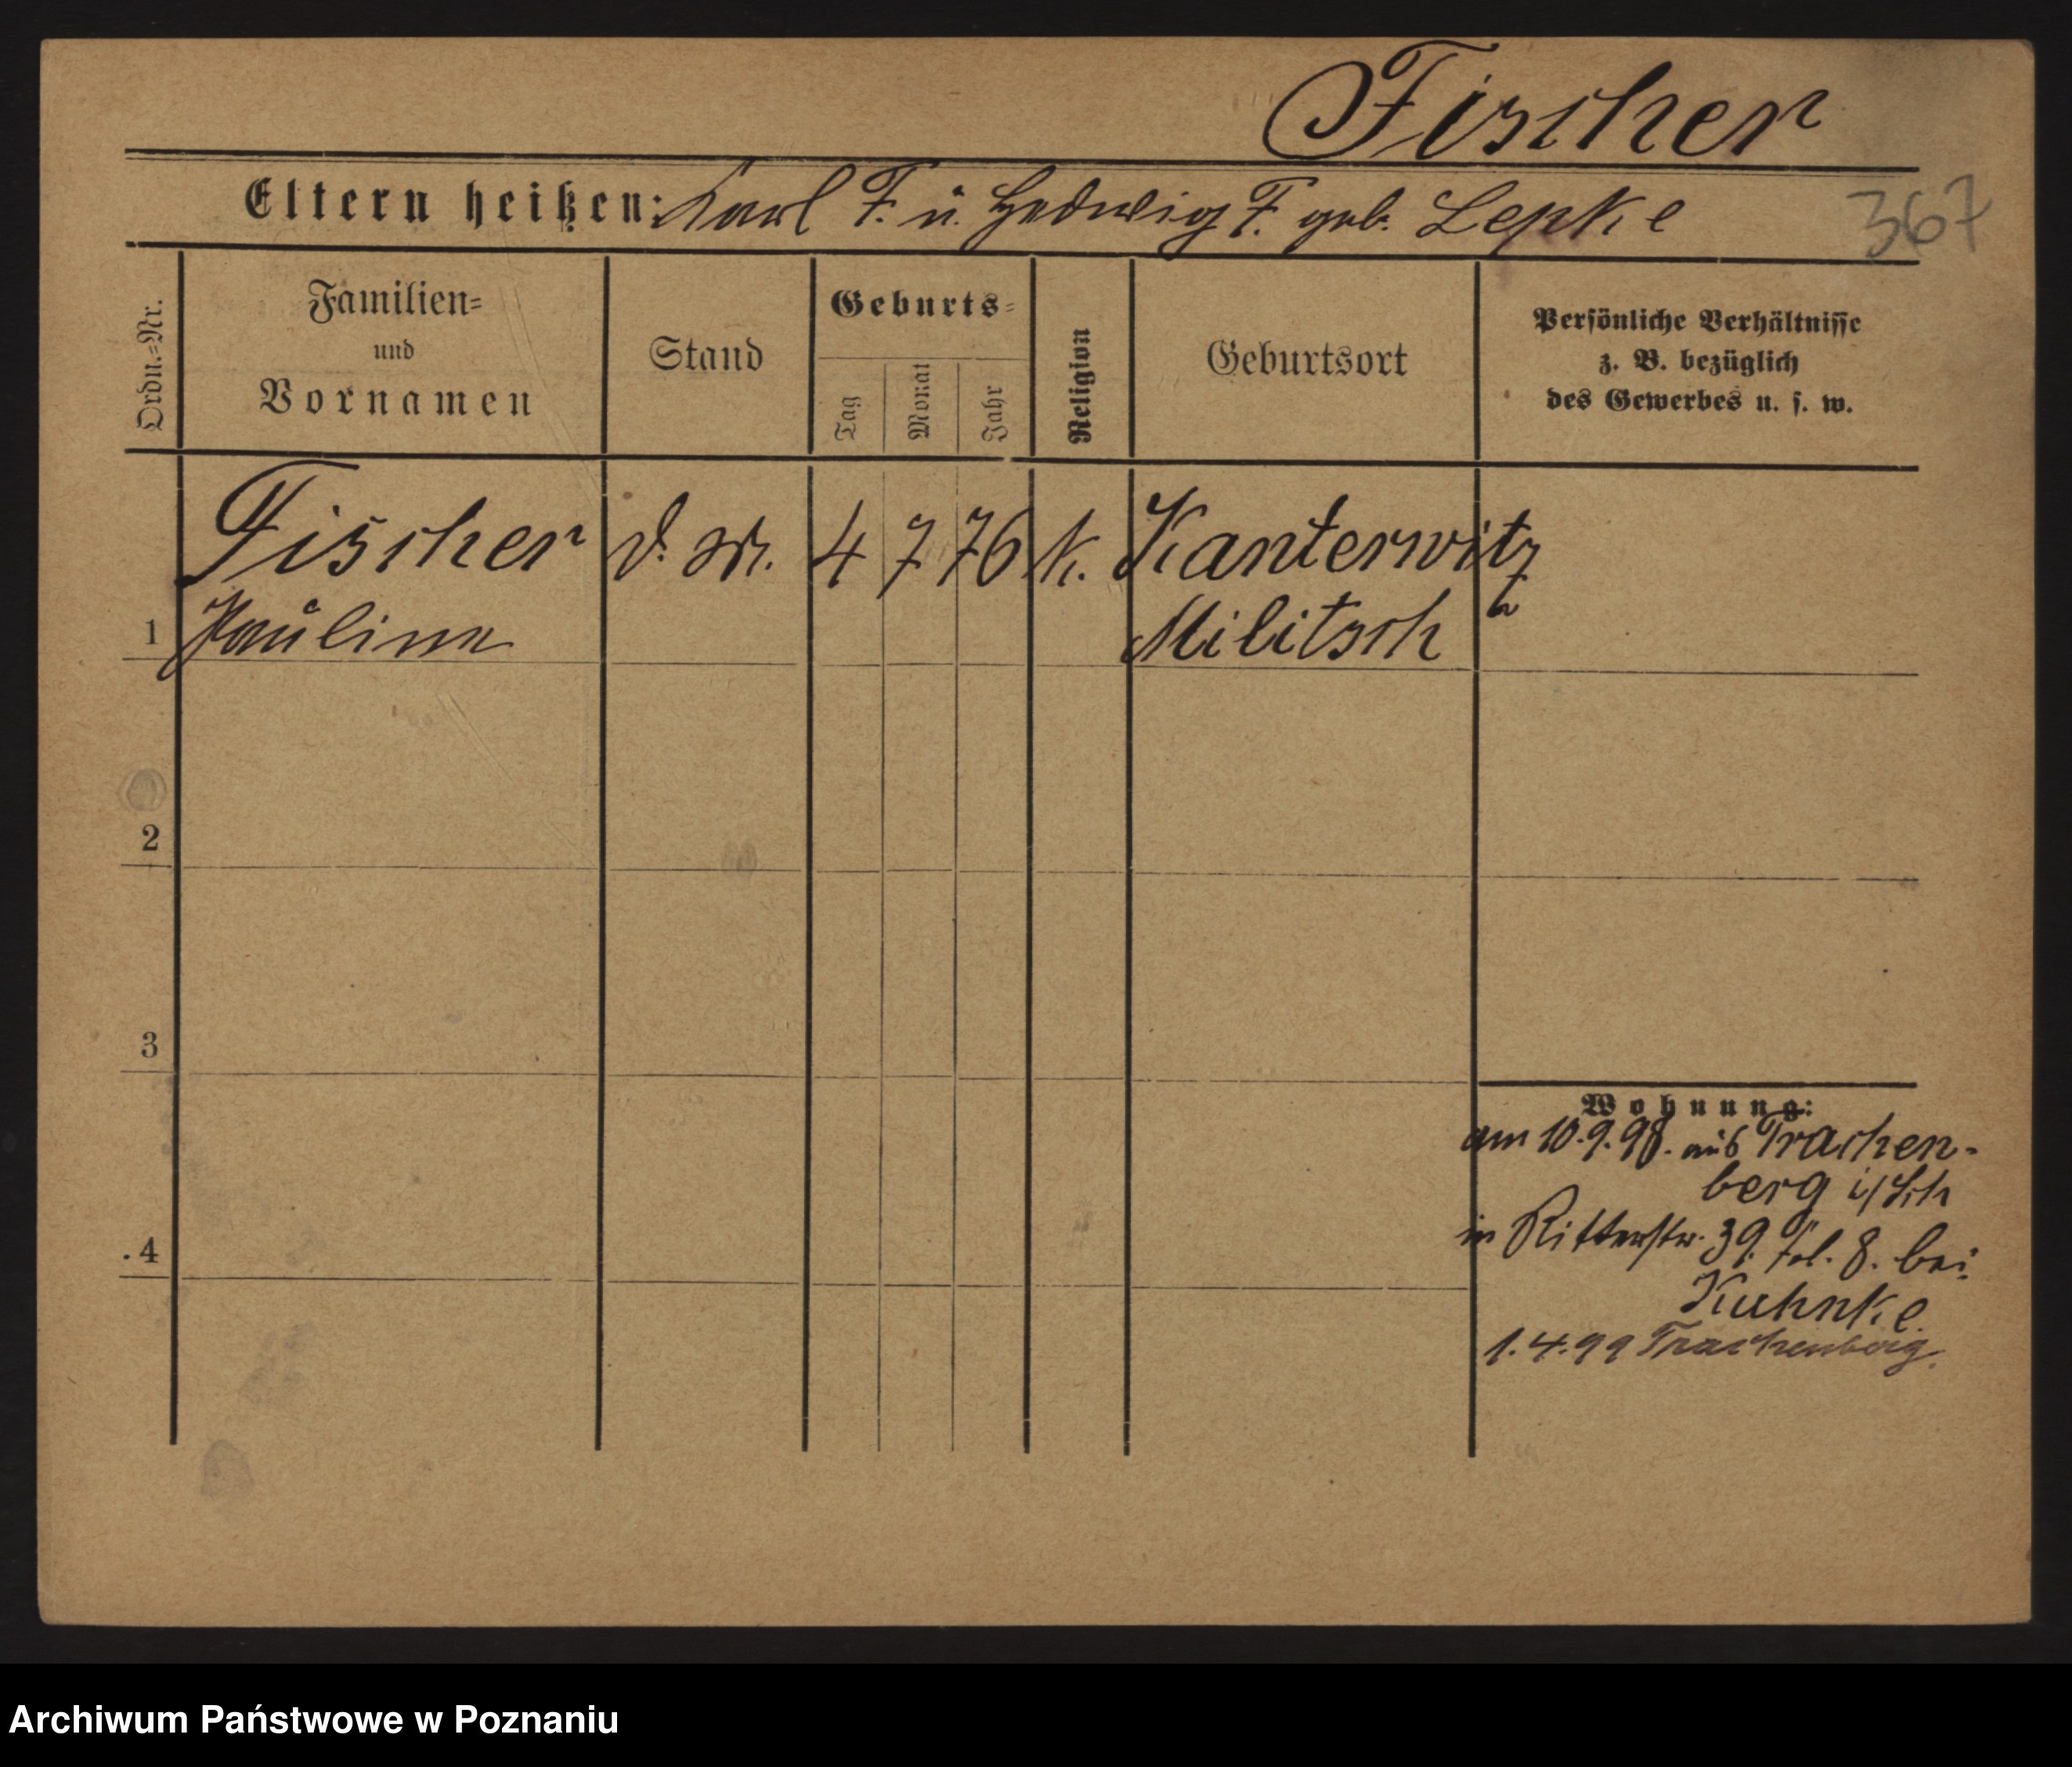 Fischer
Eltern heißen: Karl F. u. Hedwig F. geb. Lepke
367
Ordn.=Nr.
Familien=
und
Vornamen
Stand
Geburts=
Tag
Monat
Jahr
Religion
Geburtsort
Persönliche Verhältnisse
z. B. bezüglich
des Gewerbes u. s. w.
Fischer d. M. 4 7 76 k. Kanterwitz
1 Pauline Militsch
2
3
4
Wohnung:
am 10.9.98. aus Trachen-
berg i/Sch
in Ritterstr. 39. 8. bei
Kuhnke
1.4.99 Trachenberg.
Archiwum Państwowe w Poznaniu